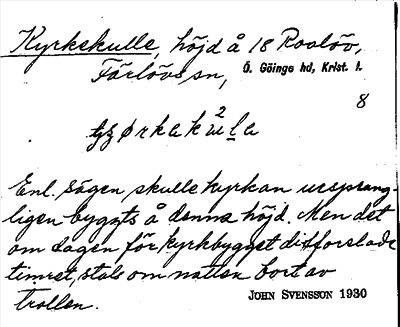 Kyrkskulle, höjd å 18 Roolöv,
Färlövs sn, Ö. Göinge hd, Krist. l.
8
2
Enl. sägen skulle kyrkan ursprung-
ligen byggts å denna höjd. Men det
om dagen för kyrkbygget ditforslade
timret, stals om natten bort av
trollen.
JOHN SVENSSON 1930